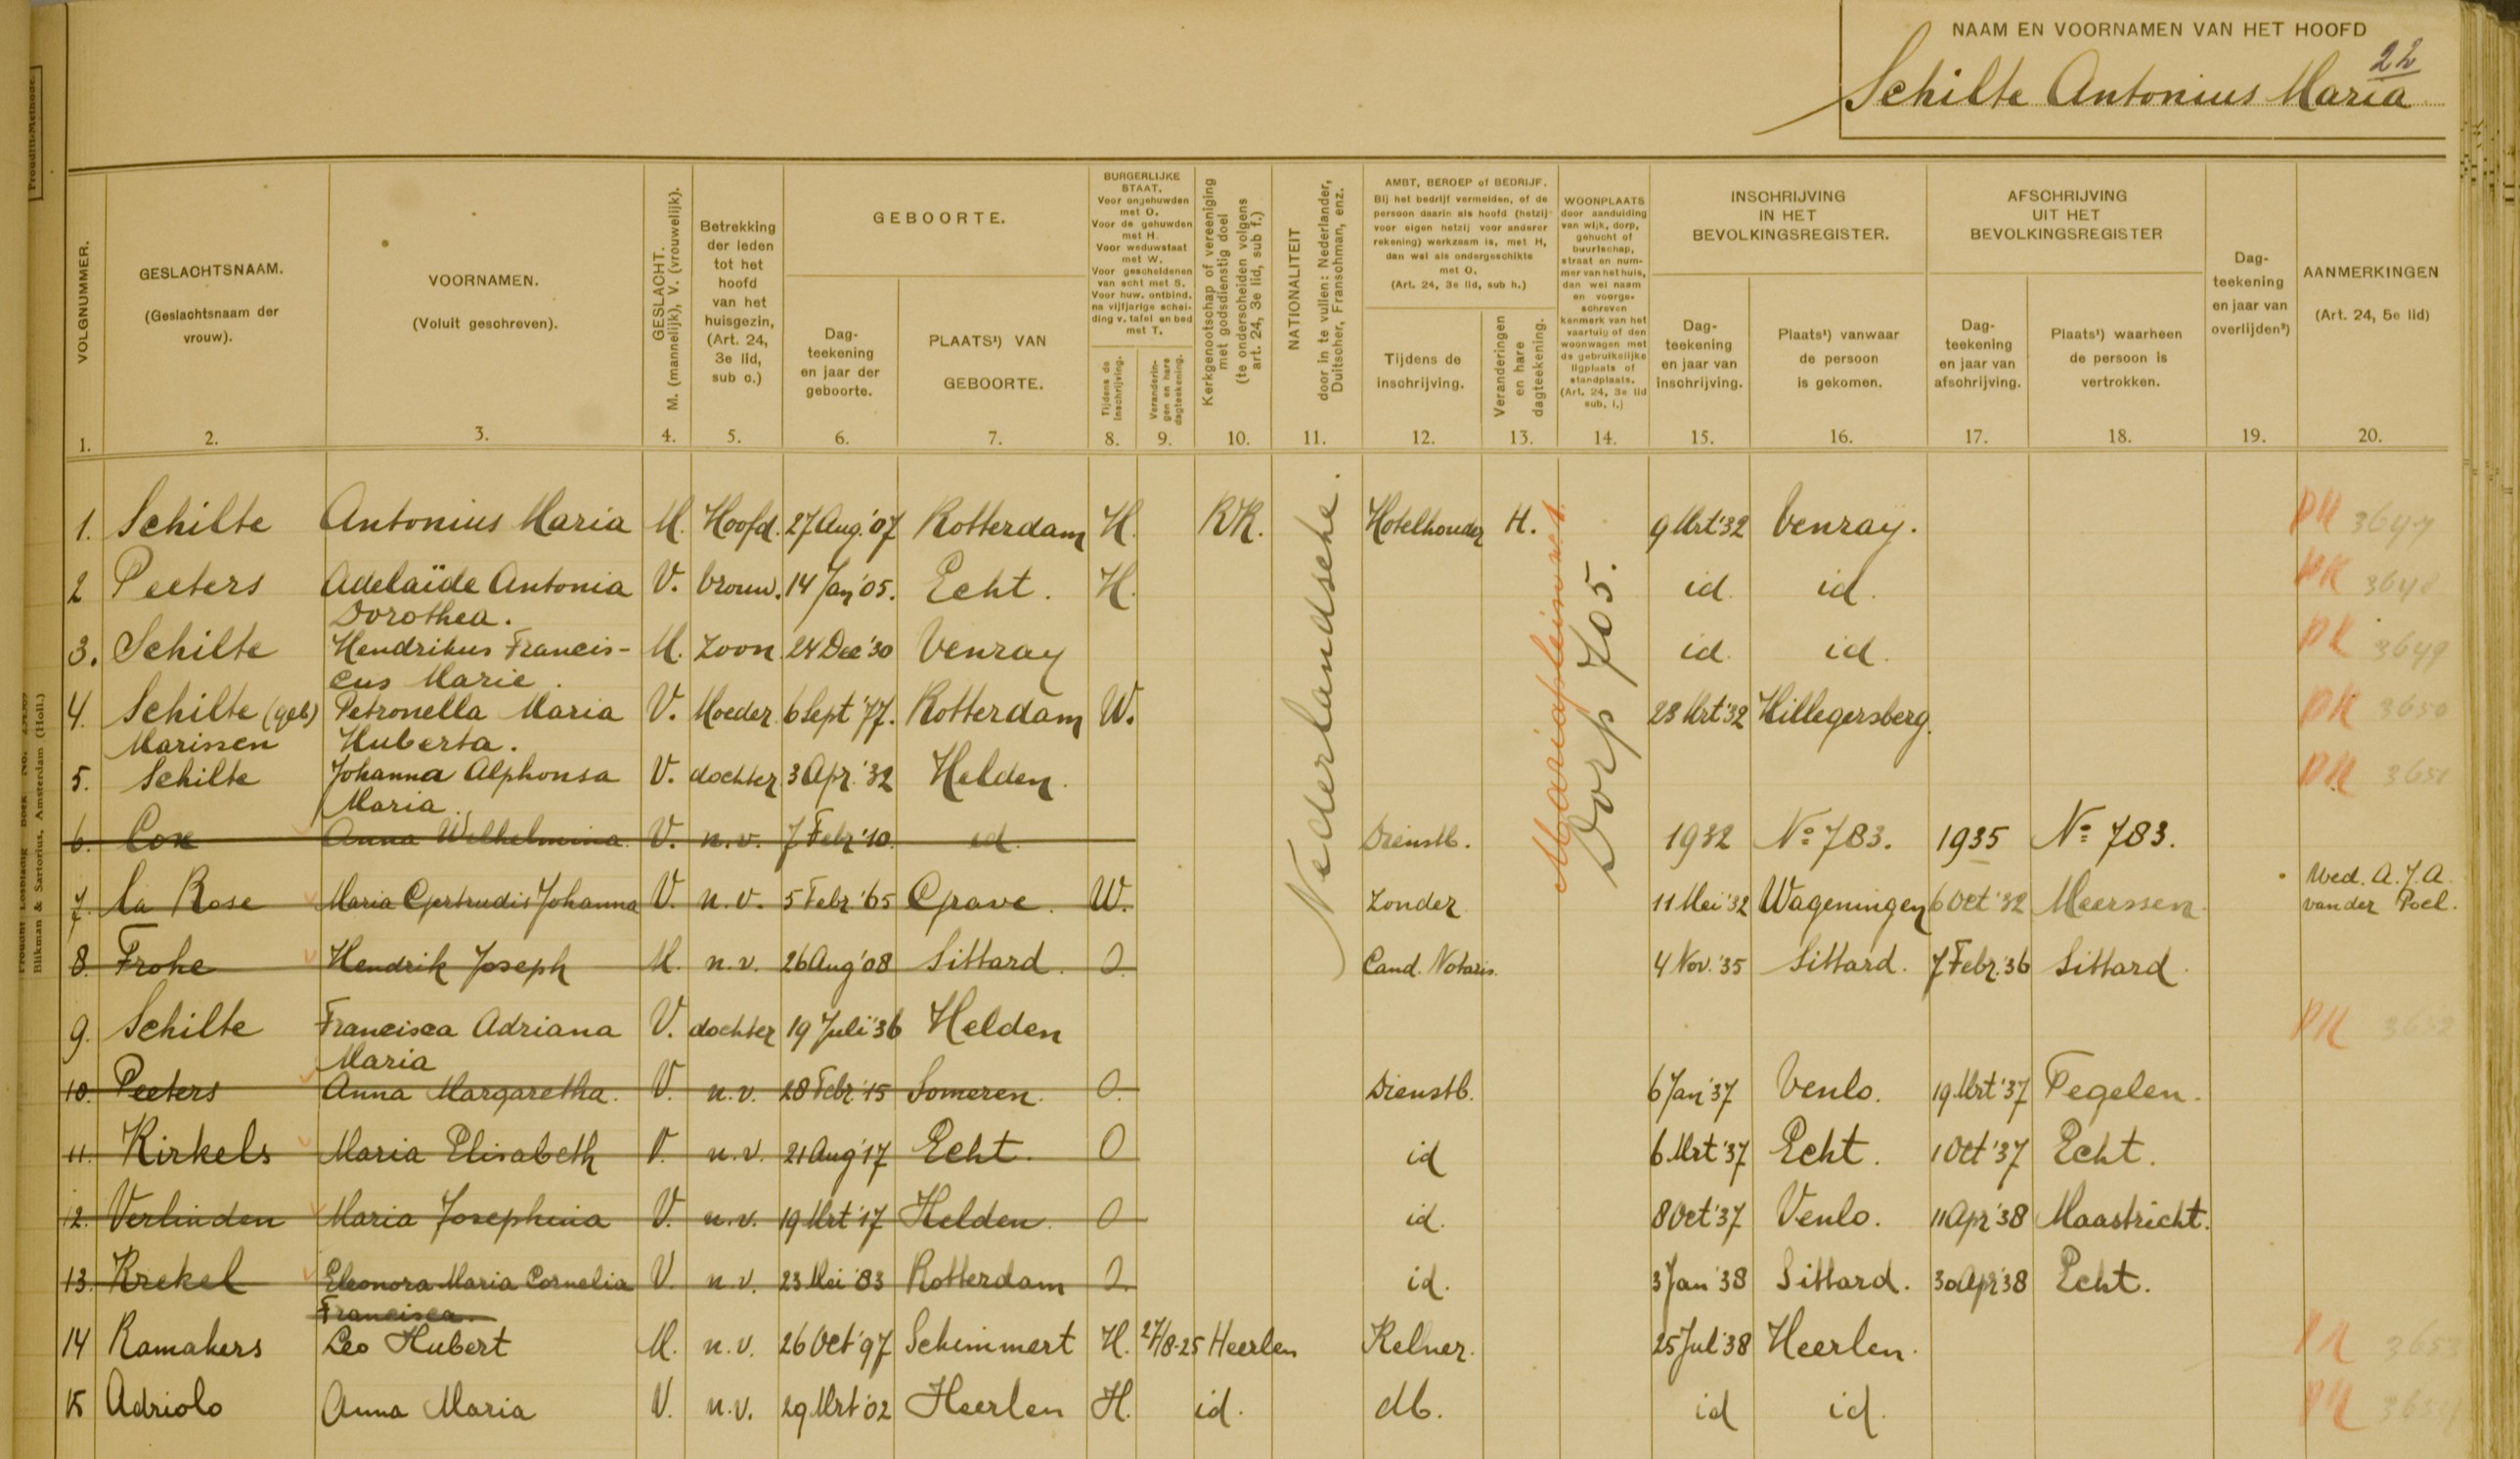 NAAM EN VOORNAMEN VAN HET HOOFD
22
Schilte Antonius Maria
VOLGNUMMER.
GESLACHTSNAAM.
(Geslachtsnaam der
vrouw).
VOORNAMEN.
(Voluit geschreven).
GESLACHT.
M. (mannelijk), V. (vrouwelijk).
Betrekking
der leden
tot het
hoofd
van het
huisgezin,
(Art. 24,
3e lid,
sub c.)
GEBOORTE.
Dag-
teekening
en jaar der
geboorte.
PLAATS¹) VAN
GEBOORTE.
BURGERLIJKE
STAAT.
Voor ongehuwden
met O.
Voor de gehuwden
met H.
Voor weduwstaat
met W.
Voor gescheidenen
van echt met S.
Voor huw. ontbind.
na vijfjarige schei-
ding v. tafel en bed
met T.
Tijdens de
inschrijving.
Veranderin-
gen en hare
dagteekening.
Kerkgenootschap of vereeniging
met godsdienstig doel
(te onderscheiden volgens
art. 24, 3e lid, sub f.)
NATIONALITEIT
door in te vullen: Nederlander,
Duitscher, Franschman, enz.
AMBT, BEROEP of BEDRIJF.
Bij het bedrijf vermelden, of de
persoon daarin als hoofd (hetzij
voor eigen hetzij voor anderer
rekening) werkzaam is, met H,
dan wel als ondergeschikte
met O.
(Art. 24, 3e lid, sub h.)
Tijdens de
inschrijving.
Veranderingen
en hare
dagteekening.
WOONPLAATS
door aanduiding
van wijk, dorp,
gehucht of
buurtschap,
straat en num-
mer van het huis,
dan wel naam
en voorge-
schreven
kenmerk van het
vaartuig of den
woonwagen met
de gebruikelijke
ligplaats of
standplaats.
(Art. 24, 3e lid
sub, i.)
INSCHRIJVING
IN HET
BEVOLKINGSREGISTER.
Dag-
teekening
en jaar van
inschrijving.
Plaats¹) vanwaar
de persoon
is gekomen.
AFSCHRIJVING
UIT HET
BEVOLKINGSREGISTER
Dag-
teekening
en jaar van
afschrijving.
Plaats¹) waarheen
de persoon is
vertrokken.
Dag-
teekening
en jaar van
overlijden²)
AANMERKINGEN
(Art. 24, 5e lid)
1. 2. 3. 4. 5. 6. 7. 8. 9. 10. 11. 12. 13. 14. 15. 16. 17. 18. 19. 20.
1. Schilte Antonius Maria M. Hoofd. 27 Aug. '07 Rotterdam H. RK. Hotelhouder H. 9 Mrt '32 Venray. PK 3647
2 Peeters Adelaïde Antonia V. Vrouw. 14 Jan '05. Echt. H. id. id. PK 3648
Dorothea.
3. Schilte Hendrikus Francis- M. Zoon. 24 Dec '30 Venray id. id. PK 3649
cus Marie.
4. Schilte (geb) Petronella Maria V. Moeder 6 Sept '77. Rotterdam W. 23 Mrt '32 Hillegersberg. PK 3650
Marissen Huberta.
5. Schilte Johanna Alphonsa V. dochter 3 Apr. '32 Helden. PK 3651
Maria.
6. Cox Anna Wilhelmina. V. n.v. 7 Febr '10. id. Dienstb. 1932 No 783. 1935 No 783.
7. la Rose Maria Gertrudis Johanna V. n.v. 5 Febr '65 Grave. W. Zonder. 11 Mei '32 Wageningen 6 Oct '32 Meerssen. Wed. A.J.A.
van der Poel.
8. Frohe Hendrik Joseph M. n.v. 26 Aug '08 Sittard. O. Cand. Notaris. 4 Nov. '35 Sittard. 7 Febr. '36 Sittard.
9. Schilte Francisca Adriana V. dochter 19 Juli '36 Helden PK 3652
Maria
10. Peeters Anna Margaretha. V. n.v. 28 Febr. '15 Someren. O. Dienstb. 6 Jan '37 Venlo. 19 Mrt '37 Tegelen.
11. Kirkels Maria Elisabeth V. n.v. 21 Aug '17 Echt. O id 6 Mrt '37 Echt. 1 Oct '37 Echt.
12. Verlinden Maria Josephina V. n.v. 19 Mrt '17 Helden. O id. 8 Oct '37 Venlo. 11 Apr '38 Maastricht.
13. Krekel Eleonora Maria Cornelia V. n.v. 23 Mei '83 Rotterdam O. id. 3 Jan '38 Sittard. 30 Apr '38 Echt.
Francisca.
14 Ramakers Leo Hubert M. n.v. 26 Oct '97 Schimmert H. 27/8-25 Heerlen Kelner. 25 Jul '38 Heerlen. PK 3653
15 Adriolo Anna Maria V. n.v. 29 Mrt '02 Heerlen H. id. db. id id. PK 3654
Nederlandsche.
Mariaplein
Dorp 705.
Blikman & Sartorius, Amsterdam (Holl.)